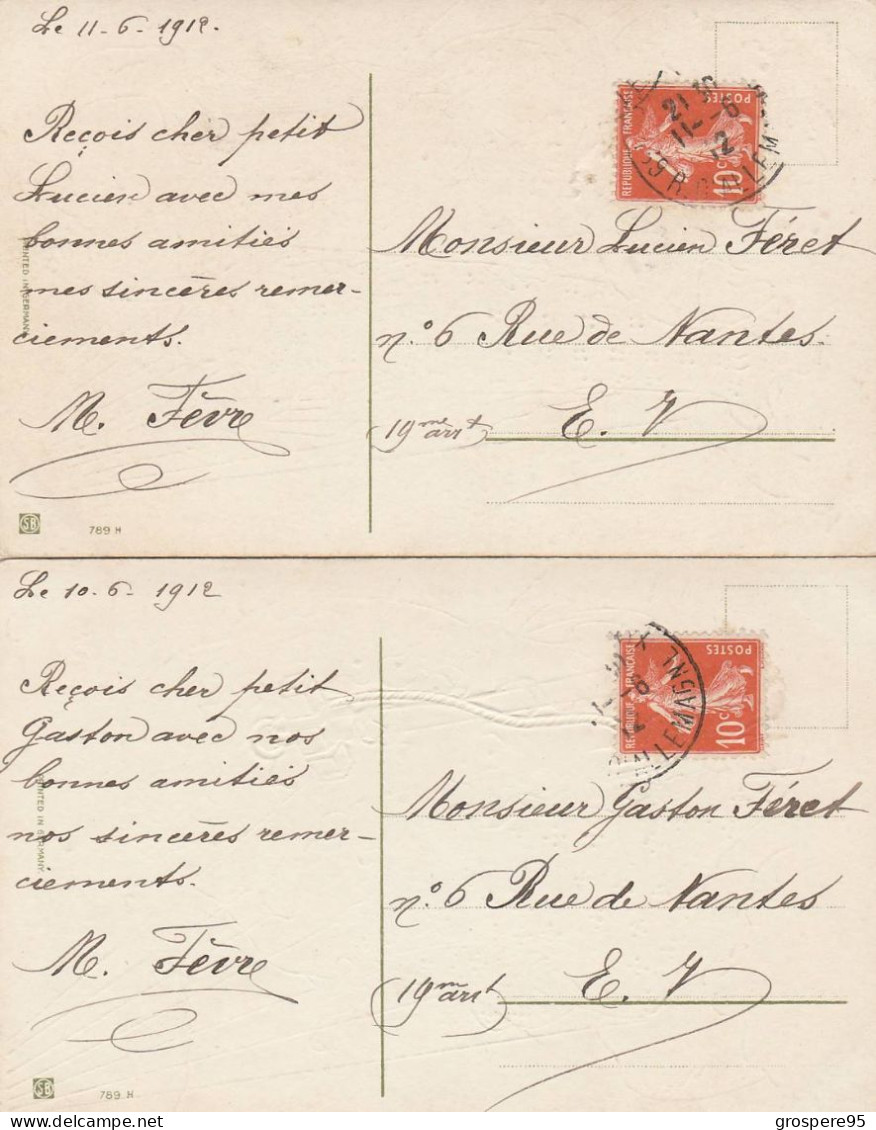 Le 11-6-1912.
Reçois cher petit
Lucien avec mes
bonnes amitiés
mes sincères remer-
ciements.
M. Fèvre
PRINTED IN GERMANY
SB
789 H
POSTES
RÉPUBLIQUE FRANÇAISE
10c
21 30
11-6
12
59 R. D'ALLEM
Monsieur Lucien Féret
n.° 6 Rue de Nantes.
E. V
19me arrt
Le 10-6-1912
Reçois cher petit
Gaston avec nos
bonnes amitiés
nos sincères remer-
ciements.
M. Fèvre
PRINTED IN GERMANY
SB
789 H
POSTES
RÉPUBLIQUE FRANÇAISE
10c
12
D'ALLEMAGNE
Monsieur Gaston Féret
n.° 6 Rue de Nantes
E. V
19m arrt
grospere95